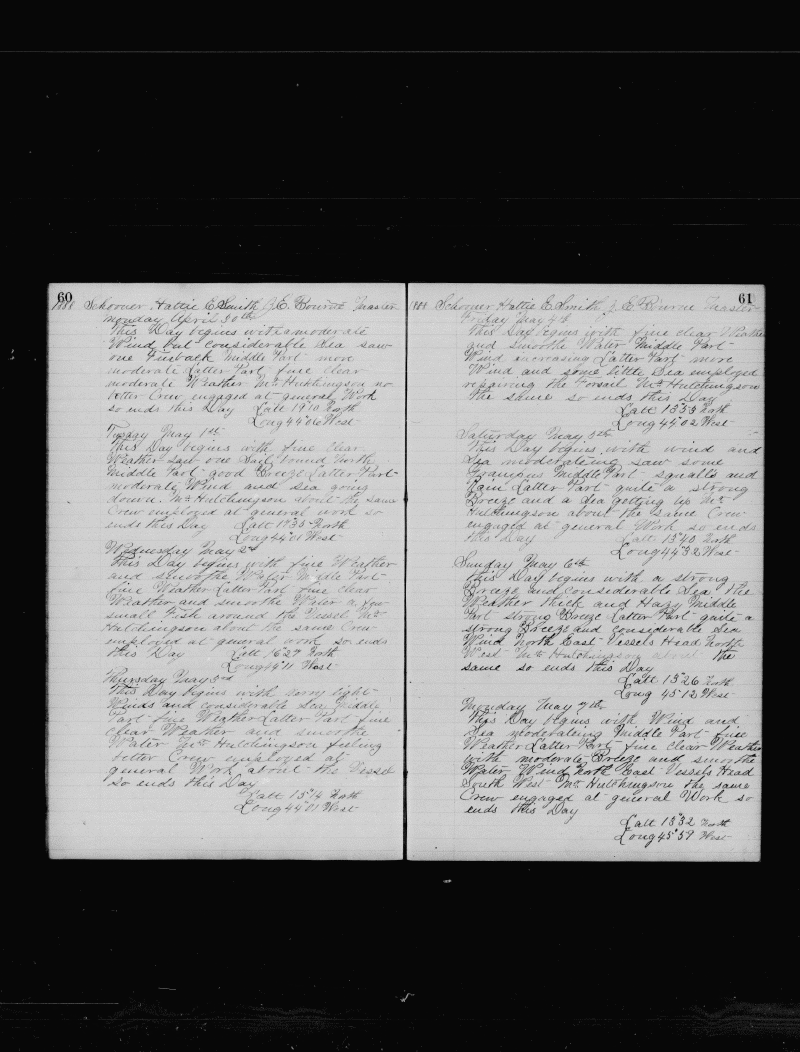 60
1888 Schooner Hattie E Smith J. E. Bourne Master
Monday April 30th
This Day begins with a moderate
Wind but considerable Sea saw
one Finback Middle Part more
moderate Latter Part fine clear
moderate Weather Mr Hutchingson no
better Crew engaged at general Work
so ends this Day Latt 19°10 North
Long 44°06 West
Tusday May 1st
This Day begins with fine clear
Weather saw one Sail bound North
Middle Part good Breeze Latter Part
moderate Wind and Sea going
down. Mr Hutchingson about the same
Crew employed at general work so
ends this Day Latt 17°35 North
Long 44°01 West
Wednesday May 2nd
This Day begins with fine Weather
and smoothe Water Middle Part
fine Weather Latter Part fine clear
Weather and smoothe Water a few
small Fish around the Vessel Mr
Hutchingson about the same Crew
employed at general work so ends
this Day Latt 16°27 North
Long 44°11 West
Thursday May 3rd
This Day begins with very light
Winds and considerable Sea Middle
Part fine Weather Latter Part fine
clear Weather and smoothe
Water Mr Hutchingson feeling
better Crew employed at
general Work about the Vessel
So ends this Day
Latt 15°14 North
Long 44°01 West
61
1888 Schooner Hattie E Smith J. E. Bourne Master
Friday May 4th
This Day begins with fine clear Weather
and smoothe Water Middle Part
Wind increasing Latter Part more
Wind and some little Sea employed
repairing the Forsail Mr Hutchingson
the same so ends this Day
Latt 13°53 North
Long 44°02 West
Saturday May 5th
This Day begins with wind and
Sea moderateing saw some
Middle Part squalls and
Rain Latter Part quite a strong
Breeze and a Sea getting up Mr
Hutchingson about the same Crew
engaged at general Work so ends
this Day Latt 13°40 North
Long 44°32 West
Sunday May 6th
This Day begins with a strong
Breeze and considerable Sea the
Weather thick and Hazy Middle
Part strong Breeze Latter Part quite a
strong Breeze and considerable Sea
Wind North East Vessels Head North
West Mr Hutchingson about the
same so ends this Day
Latt 13°26 North
Long 45°12 West
Monday May 7th
This Day begins with Wind and
Sea moderateing Middle Part fine
Weather Latter Part fine clear Weather
with moderate Breeze and smoothe
Water Wind North East Vessels Head
South West Mr Hutchingson the same
Crew engaged at general Work so
ends this Day
Latt 13°32 North
Long 45°59 West